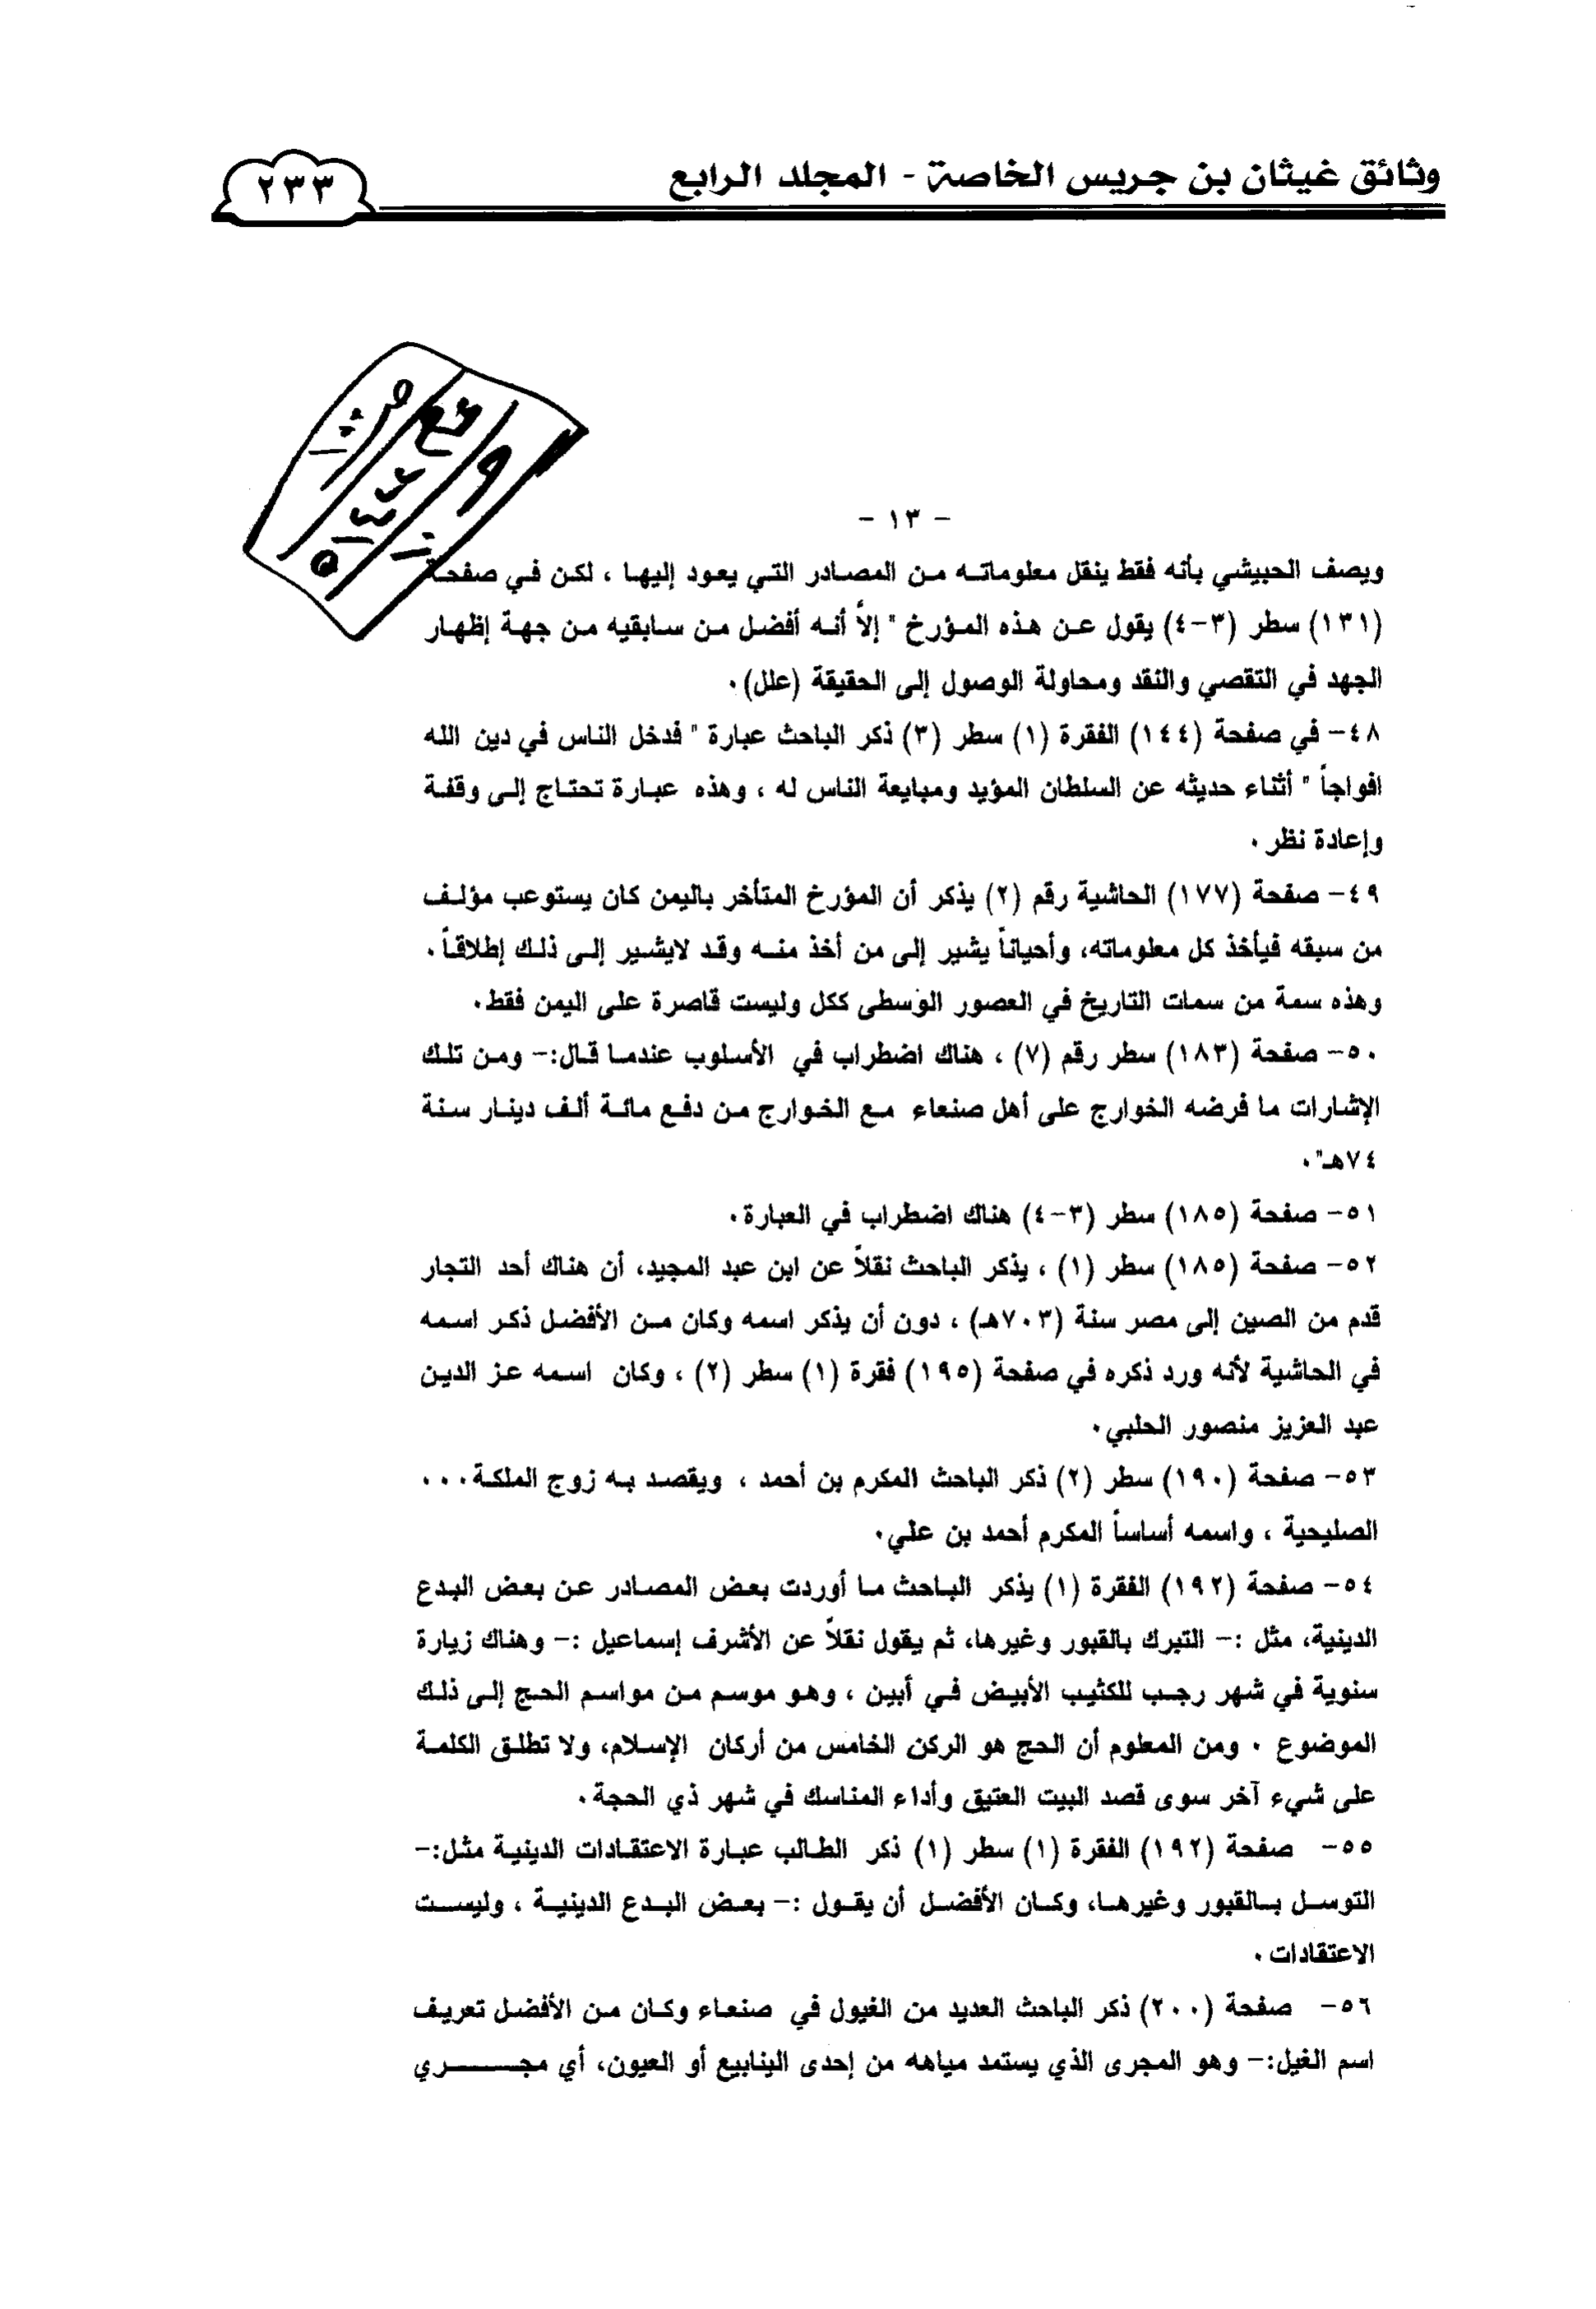 وثائق غيثان بن جريس الخاصة - المجلد الرابع
٢٣٣
- ١٣ -
ويصف الحبيشي بأنه فقط ينقل معلوماته من المصادر التي يعود إليها ، لكن في صفحة
(١٣١) سطر (٣-٤) يقول عن هذه المؤرخ " إلاّ أنه أفضل من سابقيه من جهة إظهار
الجهد في التقصي والنقد ومحاولة الوصول إلى الحقيقة (علل).
٤٨- في صفحة (١٤٤) الفقرة (١) سطر (٣) ذكر الباحث عبارة " فدخل الناس في دين الله
افواجاً " أثناء حديثه عن السلطان المؤيد ومبايعة الناس له ، وهذه عبارة تحتاج إلى وقفة
وإعادة نظر .
٤٩- صفحة (١٧٧) الحاشية رقم (٢) يذكر أن المؤرخ المتأخر باليمن كان يستوعب مؤلف
من سبقه فيأخذ كل معلوماته، وأحياناً يشير إلى من أخذ منه وقد لايشير إلى ذلك إطلاقاً .
وهذه سمة من سمات التاريخ في العصور الوسطى ككل وليست قاصرة على اليمن فقط.
٥٠- صفحة (١٨٣) سطر رقم (٧) ، هناك اضطراب في الأسلوب عندما قال:- ومن تلك
الإشارات ما فرضه الخوارج على أهل صنعاء مع الخوارج من دفع مائة ألف دينار سنة
٧٤هـ".
٥١- صفحة (١٨٥) سطر (٣-٤) هناك اضطراب في العبارة.
٥٢- صفحة (١٨٥) سطر (١) ، يذكر الباحث نقلاً عن ابن عبد المجيد، أن هناك أحد التجار
قدم من الصين إلى مصر سنة (٧٠٣هـ) ، دون أن يذكر اسمه وكان من الأفضل ذكر اسمه
في الحاشية لأنه ورد ذكره في صفحة (١٩٥) فقرة (١) سطر (٢) ، وكان اسمه عز الدين
عبد العزيز منصور الحلبي.
٥٣- صفحة (١٩٠) سطر (٢) ذكر الباحث المكرم بن أحمد ، ويقصد به زوج الملكة...
الصليحية ، واسمه أساساً المكرم أحمد بن علي.
٥٤- صفحة (١٩٢) الفقرة (١) يذكر الباحث ما أوردت بعض المصادر عن بعض البدع
الدينية، مثل :- التبرك بالقبور وغيرها، ثم يقول نقلاً عن الأشرف إسماعيل :- وهناك زيارة
سنوية في شهر رجب للكثيب الأبيض في أبين ، وهو موسم من مواسم الحج إلى ذلك
الموضوع . ومن المعلوم أن الحج هو الركن الخامس من أركان الإسلام، ولا تطلق الكلمة
على شيء آخر سوى قصد البيت العتيق وأداء المناسك في شهر ذي الحجة.
٥٥- صفحة (١٩٢) الفقرة (١) سطر (١) ذكر الطالب عبارة الاعتقادات الدينية مثل:-
التوسل بالقبور وغيرها، وكان الأفضل أن يقول :- بعض البدع الدينية ، وليست
الاعتقادات .
٥٦- صفحة (٢٠٠) ذكر الباحث العديد من الغيول في صنعاء وكان من الأفضل تعريف
اسم الغيل:- وهو المجرى الذي يستمد مياهه من إحدى الينابيع أو العيون، أي مجـــــري